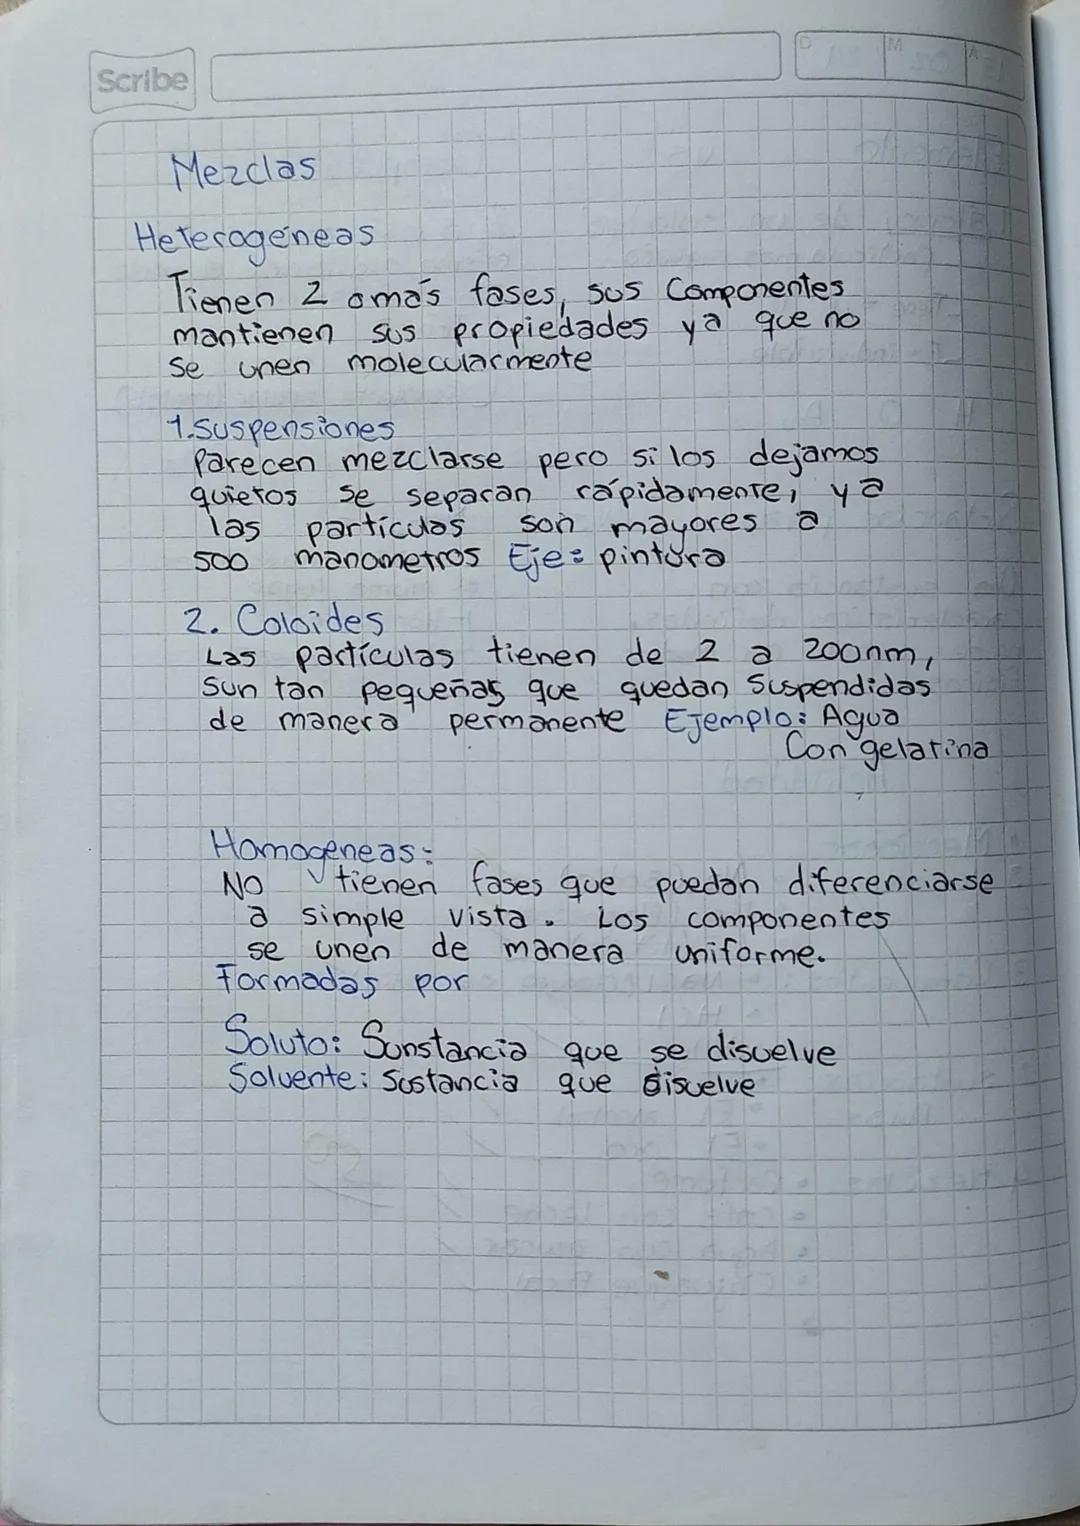 Scribe
D M A
Mezclas
Heterogéneas
Tienen 2 o más fases, sus Componentes
mantienen sus propiedades ya que no
se unen molecularmente
1.Suspensiones
Parecen mezclarse pero si los dejamos
quietos se separan rápidamente, ya
las partículas son mayores a
500 manometros Eje: pintura
2. Coloides
Las partículas tienen de 2 a 200nm,
Sun tan pequeñas que quedan Suspendidas
de manera permanente Ejemplo: Agua
Con gelatina
Homogeneas:
No tienen fases que puedan diferenciarse
a simple vista. Los componentes
se unen de manera uniforme.
Formadas por
Soluto: Sunstancia que se disuelve
Solvente: Sustancia que disuelve